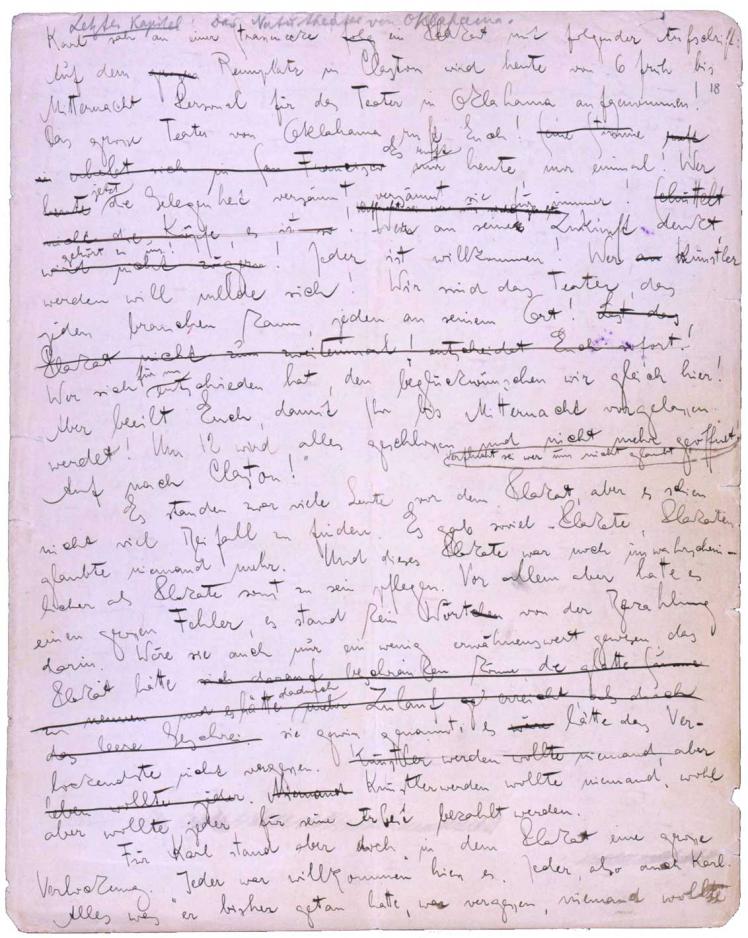 Letztes Kapitel! Das Naturtheater von Oklahama.
Karl sah an einer Strassenecke ein Plakat mit folgender Aufschrift:
Auf dem Rennplatz in Clayton wird heute von 6 früh bis
18
Mitternacht Personal für das Teater in Oklahama aufgenommen!
Das grosse Teater von Oklahama ruft Euch! Eine Stimme
erhebt sich in San Francisco Es ruft nur heute nur einmal! Wer
heute jetzt die Gelegenheit versäumt versäumt sie für immer! Schüttelt
nicht die Köpfe, es ist so! Wer an seine Zukunft denkt,
wird nicht zögern! gehört zu uns! Jeder ist willkommen! Wer Künstler
werden will melde sich! Wir sind das Teater, das
jeden brauchen kann, jeden an seinem Ort! Lest das
Plakat nicht zum zweitenmal! entscheidet Euch sofort!
Wer sich für uns entschieden hat, den beglückwünschen wir gleich hier!
Aber beeilt Euch, damit Ihr bis Mitternacht vorgelassen
werdet! Um 12 wird alles geschlossen und nicht mehr geöffnet
verflucht sei wer uns nicht glaubt!
Auf nach Clayton!"
Es standen zwar viele Leute vor dem Plakat, aber es schien
nicht viel Beifall zu finden. Es gab soviel Plakate, Plakaten
glaubte niemand mehr. Und dieses Plakat war noch unwahrschein-
licher als Plakate sonst zu sein pflegen. Vor allem aber hatte es
einen grossen Fehler, es stand kein Wörtchen von der Bezahlung
darin. Wäre sie auch nur ein wenig erwähnenswert gewesen, das
Plakat hätte
und es hätte dadurch mehr Zulauf erreicht als durch
das leere Geschrei. sie gewiss genannt; es wäre hätte das Ver-
lockendste nicht vergessen. Künstler werden wollte niemand, aber
leben wollte jeder. Niemand Künstlerwerden wollte niemand, wohl
aber wollte jeder für seine Arbeit bezahlt werden.
Für Karl stand aber doch in dem Plakat eine grosse
Verlockung. "Jeder war willkommen" hiess es. Jeder, also auch Karl.
Alles was er bisher getan hatte, war vergessen, niemand wollte